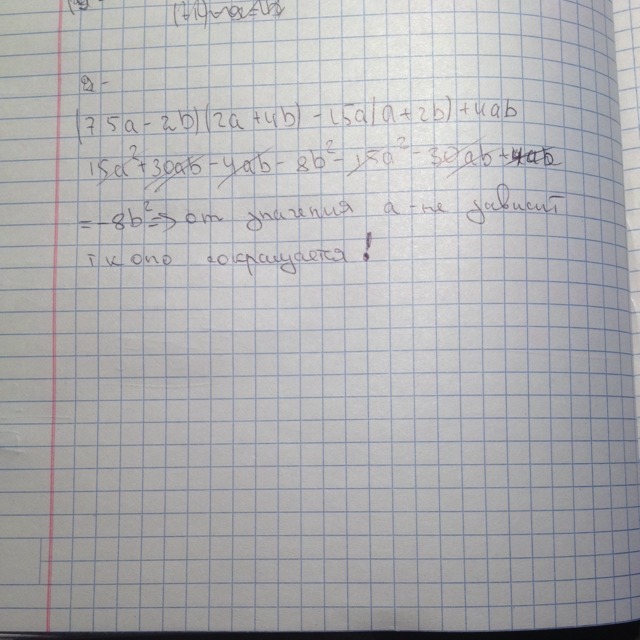 2-
(7 5a - 2b)(2a + 4b) - 15a(a + 2b) + 4ab
15a² + 30ab - 4ab - 8b² - 15a² - 30ab + 4ab
= -8b² => от значения а - не зависит
тк оно сокращается!